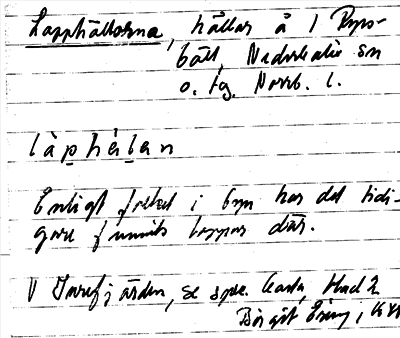 Lapphällorna, hällar å
Nederkalix sn
o. tg. Norrb. l.
làphä̀lan
Enligt folket i byn har det tidi-
gare funnits lappar där.
V Innefjärden, se spec. karta, blad 2
Birgit